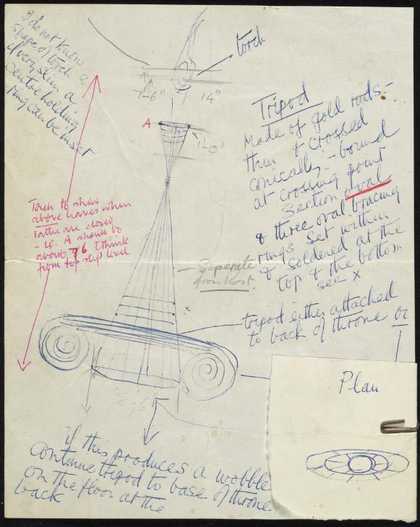 I do not know
shape of torch
if very slim a
central holding
ring can be inset
torch
1'-6"
14"
A
Torch to show
above horses when
latter are closed
- ie. A should be
about 7'6 I think
from top step level
Tripod
Made of gold rods -
thin & crossed
conically - bound
at crossing point
section oval
& three oval bracing
rings set within
& soldered at the
top & the bottom
see x
- Separate
from
tripod either attached
to back of throne or
if this produces a wobble
continue tripod to base of throne
on the floor at the
back
Plan